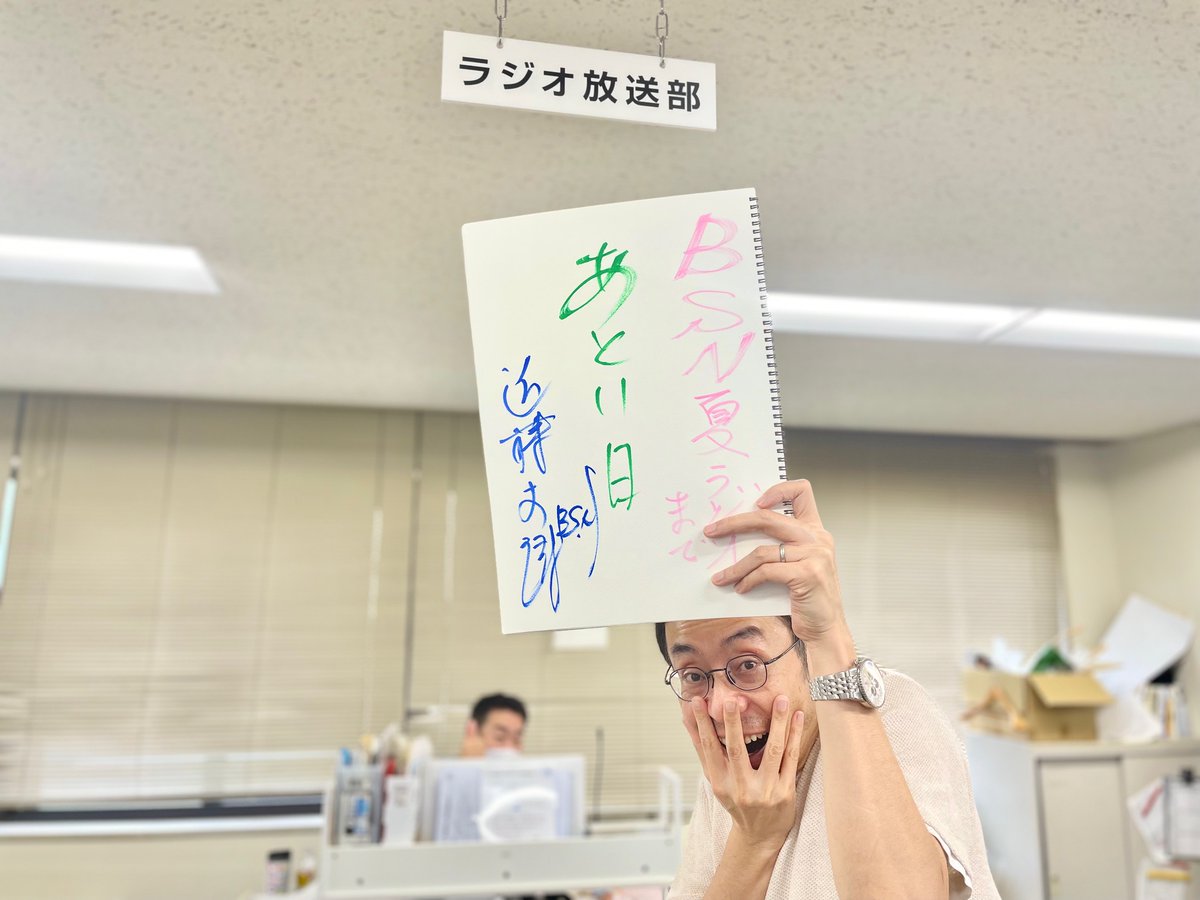 ラジオ放送部
BSN夏ラジオ
まで
あと11日
近藤丈靖
BSN